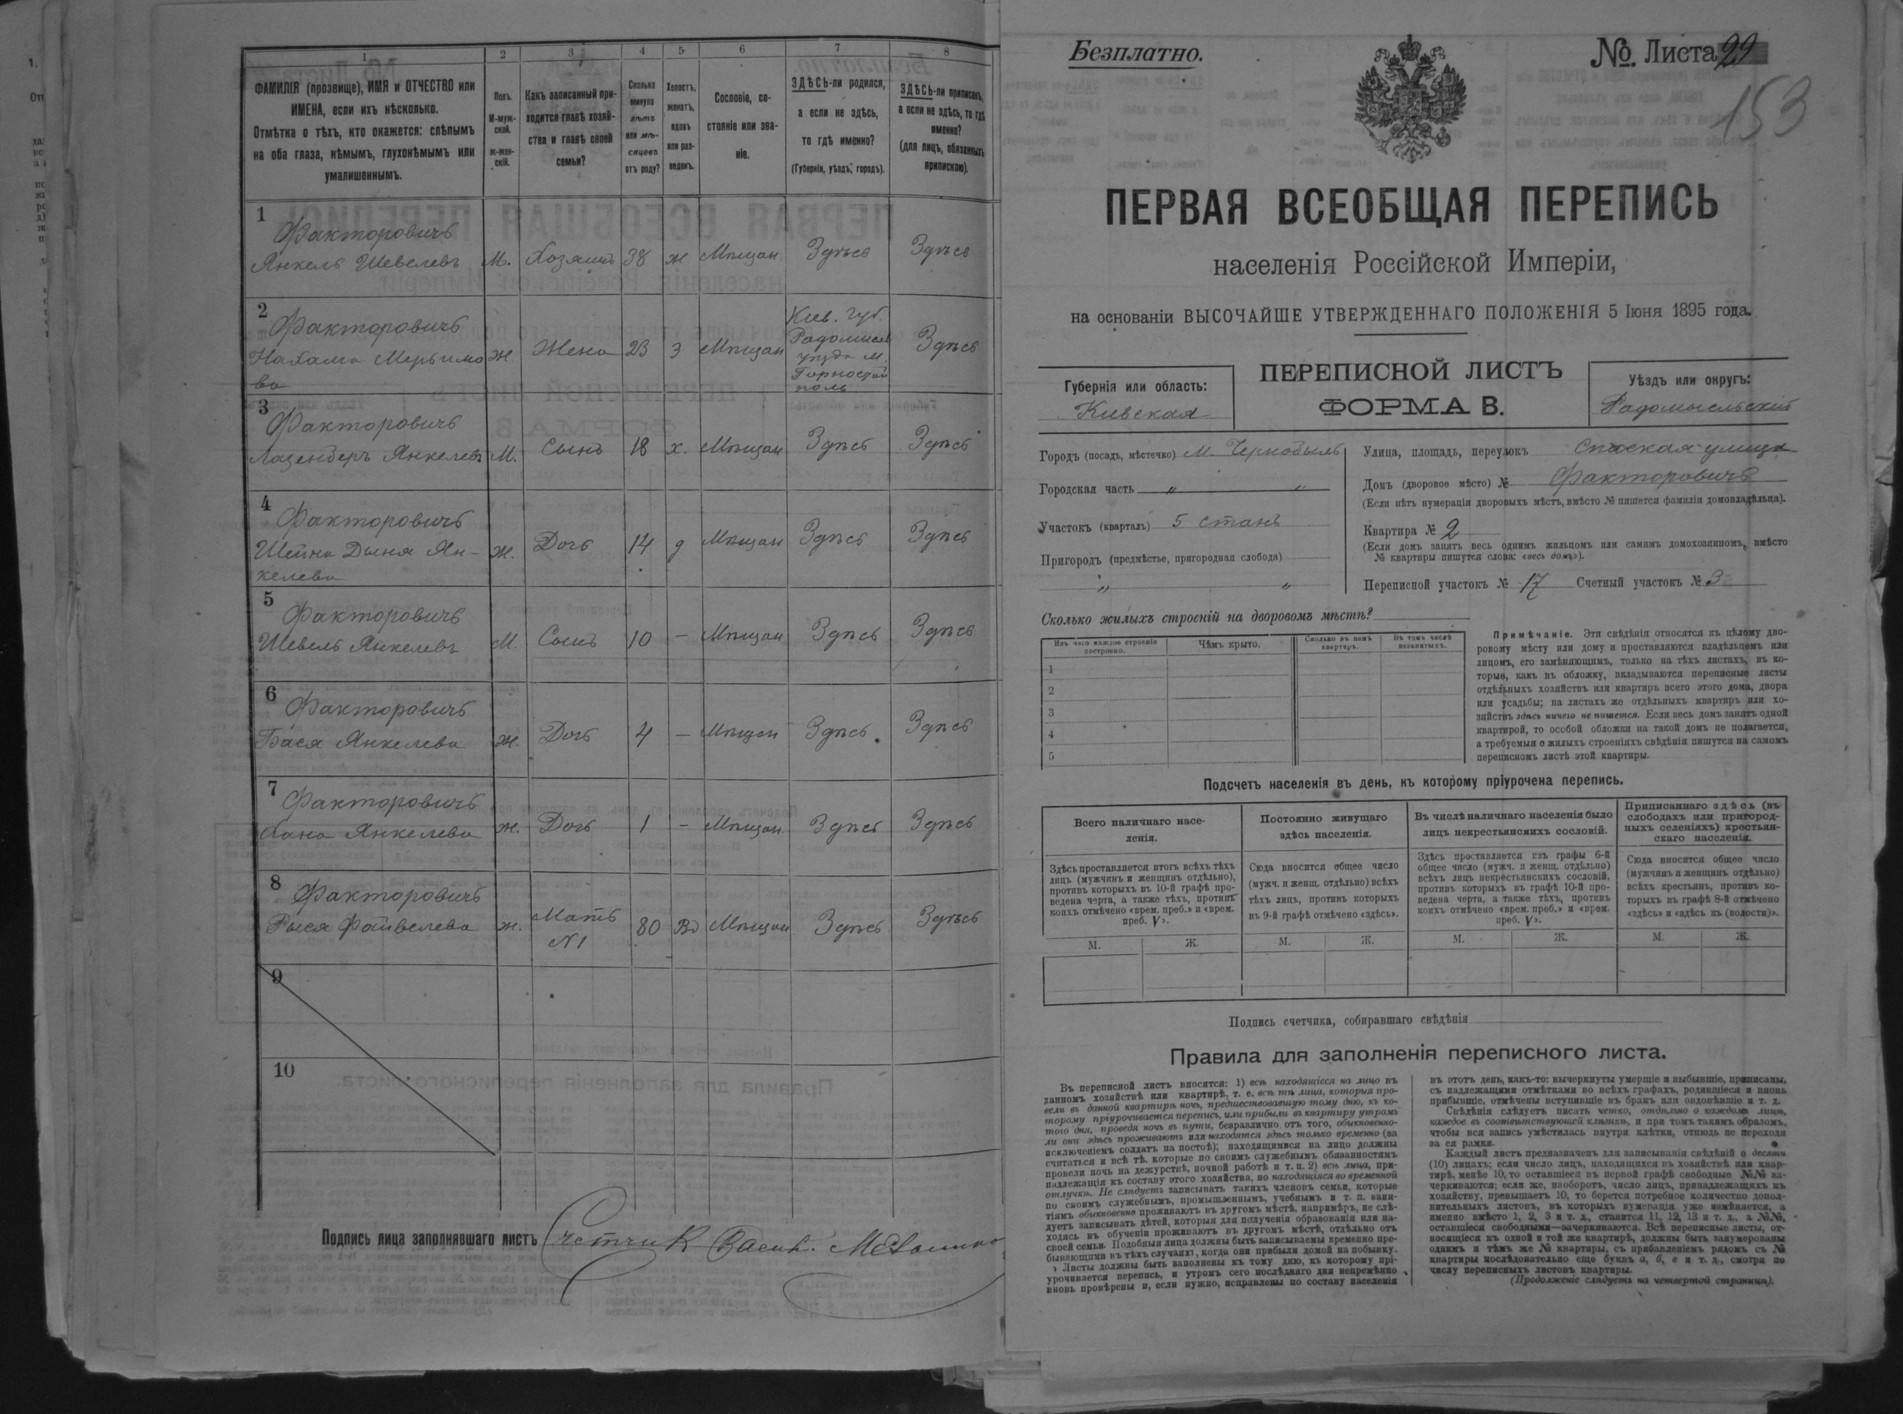 1 2 3 4 5 6 7 8
ФАМИЛІЯ (прозвище), ИМЯ и ОТЧЕСТВО или
ИМЕНА, если ихъ нѣсколько.
Отмѣтка о тѣхъ, кто окажется: слѣпымъ
на оба глаза, нѣмымъ, глухонѣмымъ или
умалишеннымъ.
Полъ.
М-муж-
ской.
ж-жен-
скій.
Какъ записанный при-
ходится главѣ хозяй-
ства и главѣ своей
семьи?
Сколько
минуло
лѣтъ
или мѣ-
сяцевъ
отъ роду?
Холостъ,
женатъ,
вдовъ
или раз-
веденъ.
Сословіе, со-
стояніе или зва-
ніе.
ЗДѢСЬ-ли родился,
а если не здѣсь,
то гдѣ именно?
(Губернія, уѣздъ, городъ).
ЗДѢСЬ-ли приписанъ,
а если не здѣсь, то гдѣ
именно?
(для лицъ, обязанныхъ
припискою).
1
Факторовичъ
Янкель Шевелевъ М. Хозяинъ 38 ж Мѣщан. Здѣсь Здѣсь
2
Факторовичъ
Нахама ж Жена 23 з Мѣщан Здѣсь
ва
Кіев. губ.
Радомысл
уѣзда м.
Горностай
поль
3
Факторовичъ
Янкелевъ М. Сынъ 18 х. Мѣщан Здѣсь Здѣсь
4
Факторовичъ
Шейна Дыня Ян- ж. Дочь 14 д Мѣщан Здѣсь Здѣсь
келева
5
Факторовичъ
Шевель Янкелевъ М. Сынъ 10 — Мѣщан Здѣсь Здѣсь
6
Факторовичъ
Бася Янкелева ж. Дочь 4 — Мѣщан Здѣсь Здѣсь
7
Факторовичъ
Хана Янкелева ж. Дочь 1 — Мѣщан Здѣсь Здѣсь
8
Факторовичъ
Рыся Файвелева ж. Мать 80 Вд Мѣщан Здѣсь Здѣсь
N1
9
10
Подпись лица заполнявшаго листъ Счетчикъ
Безплатно. № Листа 29
153
ПЕРВАЯ ВСЕОБЩАЯ ПЕРЕПИСЬ
населенія Россійской Имперіи,
на основаніи ВЫСОЧАЙШЕ УТВЕРЖДЕННАГО ПОЛОЖЕНІЯ 5 Іюня 1895 года.
ПЕРЕПИСНОЙ ЛИСТЪ
ФОРМА В.
Губернія или область:
Кіевская
Уѣздъ или округъ:
Радомысльскій
Городъ (посадъ, мѣстечко) м. Чернобыль
Городская часть " "
Участокъ (кварталъ) 5 станъ
Пригородъ (предмѣстье, пригородная слобода)
" "
Улица, площадь, переулокъ Спаская улица
Домъ (дворовое мѣсто) № Факторовичъ
(Если нѣтъ нумераціи дворовыхъ мѣстъ, вмѣсто № пишется фамилія домовладѣльца).
Квартира № 2
(Если домъ занятъ весь однимъ жильцомъ или самимъ домохозяиномъ, вмѣсто
№ квартиры пишутся слова: «весь домъ»).
Переписной участокъ № 17 Счетный участокъ № 3
Сколько жилыхъ строеній на дворовомъ мѣстѣ?
Изъ чего каждое строеніе
построено.
Чѣмъ крыто.
Сколько въ немъ
квартиръ.
Въ томъ числѣ
незанятыхъ.
1
2
3
4
5
Примѣчаніе. Эти свѣдѣнія относятся къ цѣлому дво-
ровому мѣсту или дому и проставляются владѣльцемъ или
лицомъ, его замѣняющимъ, только на тѣхъ листахъ, въ ко-
торые, какъ въ обложку, вкладываются переписные листы
отдѣльныхъ хозяйствъ или квартиръ всего этого дома, двора
или усадьбы; на листахъ же отдѣльныхъ квартиръ или хо-
зяйствъ здѣсь ничего не пишется. Если весь домъ занятъ одной
квартирой, то особой обложки на такой домъ не полагается,
а требуемыя о жилыхъ строеніяхъ свѣдѣнія пишутся на самомъ
переписномъ листѣ этой квартиры.
Подсчетъ населенія въ день, къ которому пріурочена перепись.
Всего наличнаго насе-
ленія.
Постоянно живущаго
здѣсь населенія.
Въ числѣ наличнаго населенія было
лицъ некрестьянскихъ сословій.
Приписаннаго здѣсь (въ
слободахъ или пригород-
ныхъ селеніяхъ) крестьян-
скаго населенія.
Здѣсь проставляется итогъ всѣхъ тѣхъ
лицъ (мужчинъ и женщинъ отдѣльно),
противъ которыхъ въ 10-й графѣ про-
ведена черта, а также тѣхъ, противъ
коихъ отмѣчено «врем. преб.» и «врем.
преб. V».
Сюда вносится общее число
(мужч. и женщ. отдѣльно) всѣхъ
тѣхъ лицъ, противъ которыхъ
въ 9-й графѣ отмѣчено «здѣсь».
Здѣсь проставляется изъ графы 6-й
общее число (мужч. и женщ. отдѣльно)
всѣхъ лицъ некрестьянскихъ сословій,
противъ которыхъ въ графѣ 10-й про-
ведена черта, а также тѣхъ, противъ
коихъ отмѣчено «врем. преб.» и «врем.
преб. V».
Сюда вносится общее число
(мужчинъ и женщинъ отдѣльно)
всѣхъ крестьянъ, противъ ко-
торыхъ въ графѣ 8-й отмѣчено
«здѣсь» и «здѣсь къ (волости)».
М. Ж. М. Ж. М. Ж. М. Ж.
Подпись счетчика, собиравшаго свѣдѣнія
Правила для заполненія переписного листа.
Въ переписной листъ вносятся: 1) всѣ находящіеся на лицо въ
данномъ хозяйствѣ или квартирѣ, т. е. всѣ тѣ лица, которыя про-
вели въ данной квартирѣ ночь, предшествовавшую тому дню, къ ко-
торому пріурочивается перепись, или прибыли въ квартиру утромъ
того дня, проведя ночь въ пути, безразлично отъ того, обыкновенно-
ли они здѣсь проживаютъ или находятся здѣсь только временно (за
исключеніемъ солдатъ на постоѣ); находящимися на лицо должны
считаться и всѣ тѣ, которые по своимъ служебнымъ обязанностямъ
провели ночь на дежурствѣ, ночной работѣ и т. п. 2) всѣ лица, при-
надлежащія къ составу этого хозяйства, но находящіяся во временной
отлучкѣ. Не слѣдуетъ записывать такихъ членовъ семьи, которые
по своимъ служебнымъ, промышленнымъ, учебнымъ и т. п. заня-
тіямъ обыкновенно проживаютъ въ другомъ мѣстѣ, напримѣръ, не слѣ-
дуетъ записывать дѣтей, которыя для полученія образованія или на-
ходясь въ обученіи проживаютъ въ другомъ мѣстѣ, отдѣльно отъ
своей семьи. Подобныя лица должны быть записываемы временно пре-
бывающими въ тѣхъ случаяхъ, когда они прибыли домой на побывку.
Листы должны быть заполнены къ тому дню, къ которому прі-
урочивается перепись, и утромъ сего послѣдняго дня непремѣнно
вновь провѣрены и, если нужно, исправлены по составу населенія
въ этотъ день, какъ-то: вычеркнуты умершіе и выбывшіе, приписаны,
съ надлежащими отмѣтками во всѣхъ графахъ, родившіеся и вновь
прибывшіе, отмѣчены вступившіе въ бракъ или овдовѣвшіе и т. д.
Свѣдѣнія слѣдуетъ писать четко, отдѣльно о каждомъ лицѣ,
каждое въ соотвѣтствующей клѣткѣ, и при томъ такимъ образомъ,
чтобы вся запись умѣстилась внутри клѣтки, отнюдь не переходя
за ея рамки.
Каждый листъ предназначенъ для записыванія свѣдѣній о десяти
(10) лицахъ; если число лицъ, находящихся въ хозяйствѣ или квар-
тирѣ, менѣе 10, то оставшіеся въ первой графѣ свободные №№ за-
черкиваются; если же, наоборотъ, число лицъ, принадлежащихъ къ
хозяйству, превышаетъ 10, то берется потребное количество допол-
нительныхъ листовъ, въ которыхъ нумерація уже измѣняется, а
именно вмѣсто 1, 2, 3 и т. д., ставится 11, 12, 13 и т. д., а №№,
оставшіеся свободными—зачеркиваются. Всѣ переписные листы, от-
носящіеся къ одной и той же квартирѣ, должны быть занумерованы
однимъ и тѣмъ же № квартиры, съ прибавленіемъ рядомъ съ №
квартиры послѣдовательно еще буквъ а, б, в и т. д., смотря по
числу переписныхъ листовъ квартиры.
(Продолженіе слѣдуетъ на четвертой страницѣ).